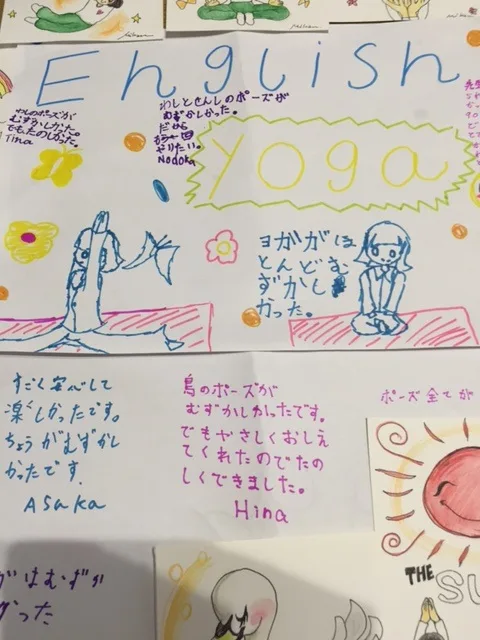 English
わしのポーズが
むずかしかった。
でもたのしかった。
Tina
わしとせんしのポーズが
むずかしかった。
だから
やりたい。
Nodoka
yoga
ヨガがほ
とんどむ
ずかし
かった。
すごく安心して
楽しかったです。
ちょうがむずかし
かったです.
Asaka
鳥のポーズが
むずかしかったです。
でもやさしくおしえ
てくれたのでたの
しくできました。
Hina
ポーズ全てが
ガはむずか
った
THE SU